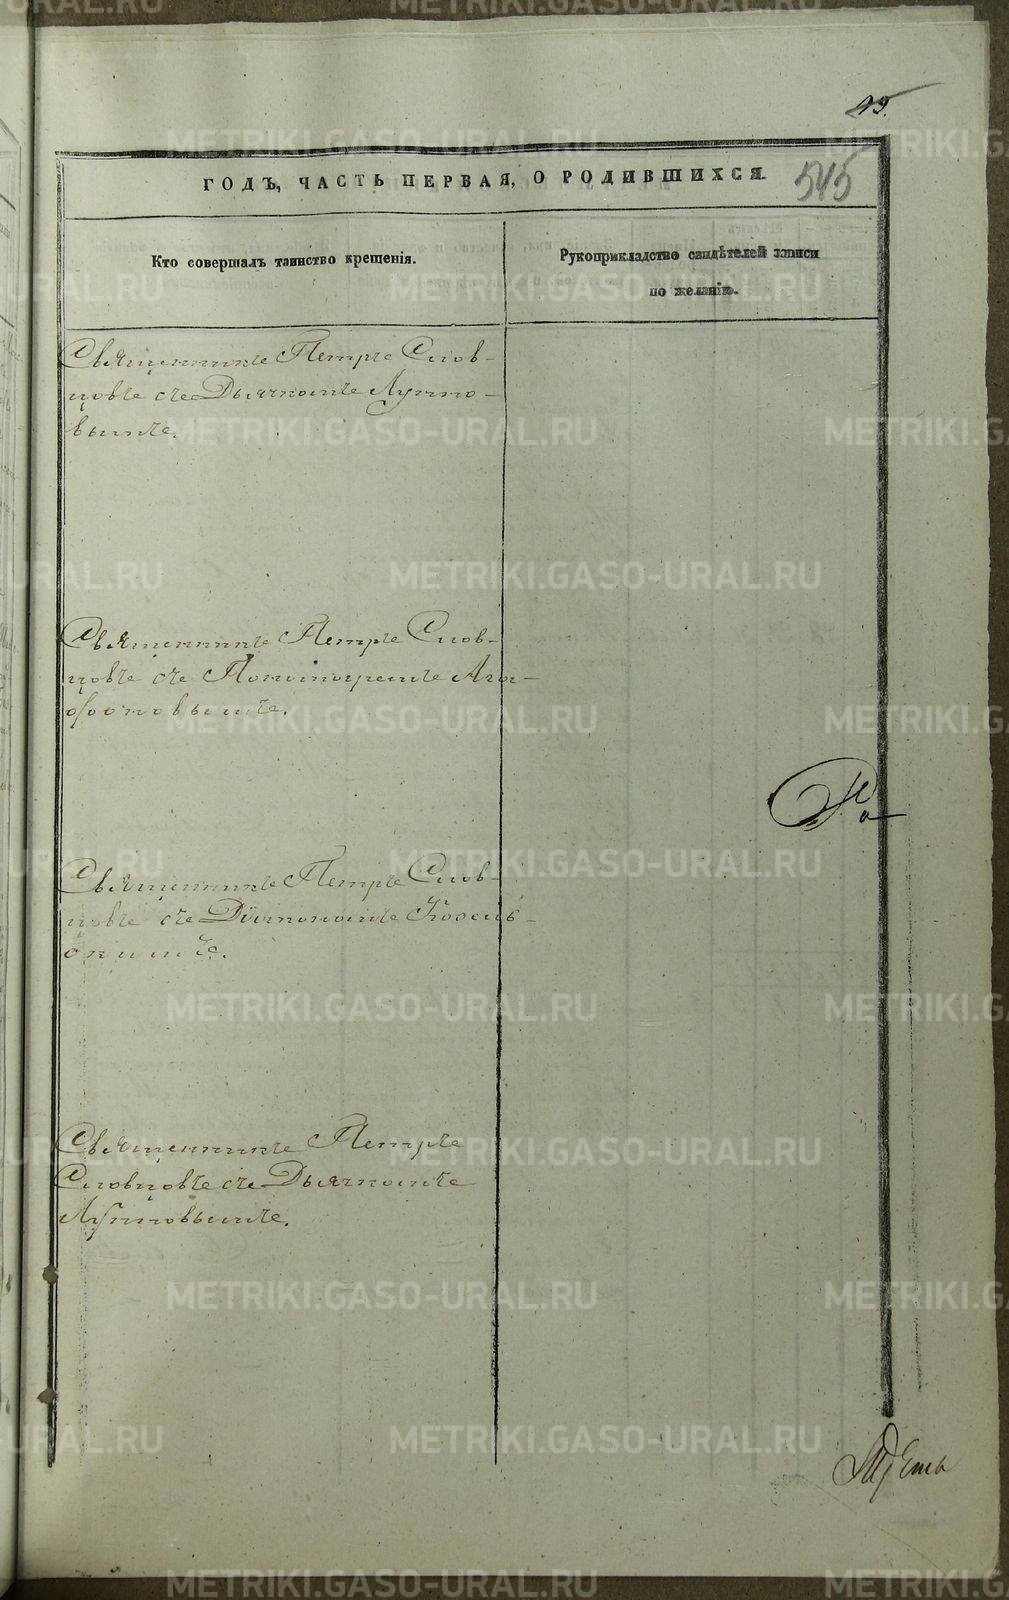 545
ГОДЪ, ЧАСТЬ ПЕРВАЯ, О РОДИВШИХСЯ.
Кто совершалъ таинство крещенія.
Рукоприкладство свидѣтелей записи
по желанію.
Священникъ Петръ Слов-
цовъ съ Дьячкомъ Луппо-
вымъ.
Священникъ Петръ Слов-
цовъ съ Пономаремъ Ага-
фоновымъ.
Священникъ Петръ Слов-
цовъ съ Діакономъ
Священникъ Петръ
Словцовъ съ Дьячкомъ
Лупповымъ.
METRIKI.GASO-URAL.RU